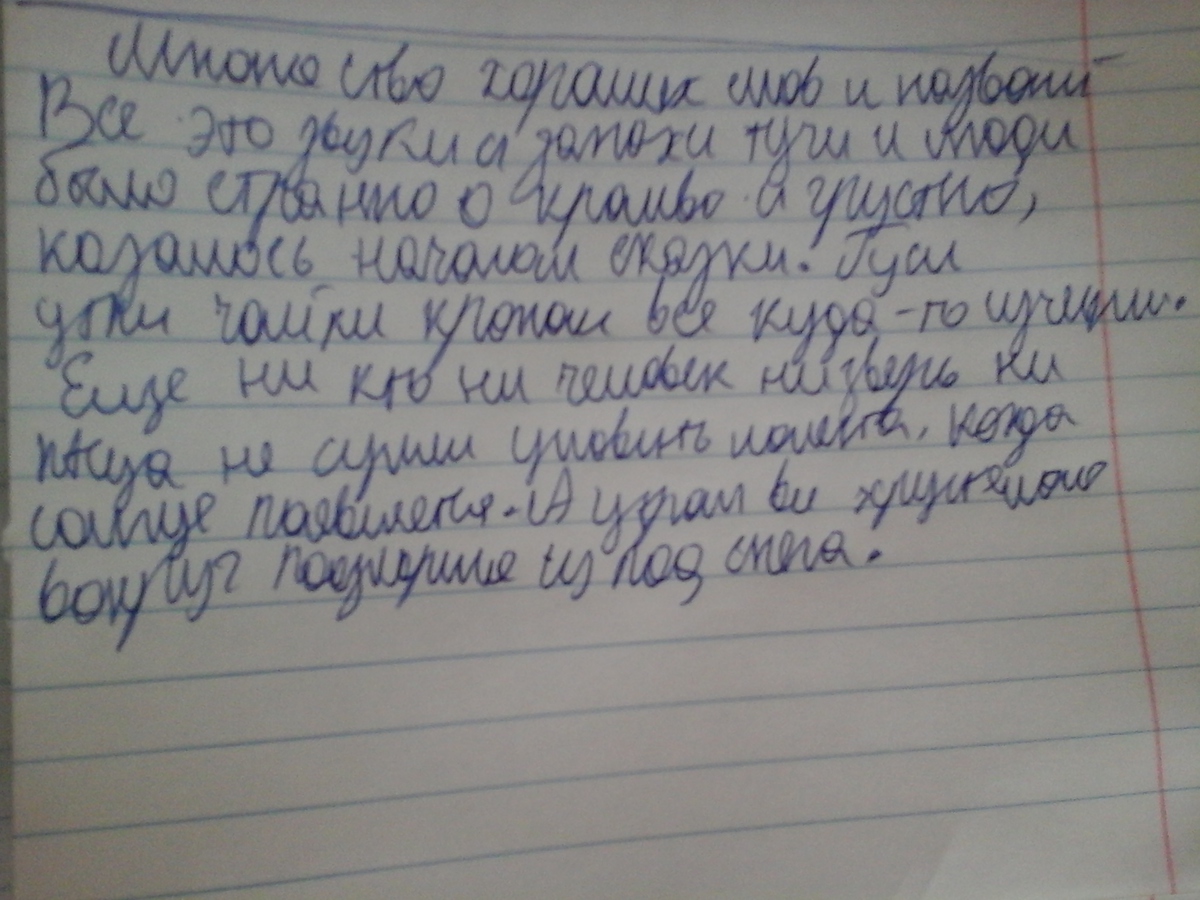 Множество хороших слов и названий
Все это звуки и запахи тучи и люди
было странно о красиво и грустно,
казалось началом сказки. Гуси
утки чайки кропали все куда-то исчезли.
Еще ни кто ни человек ни зверь ни
птица не сумели уловить момента, когда
солнце появляется. А утрам вы хрустально
вокруг подснежники из под снега.